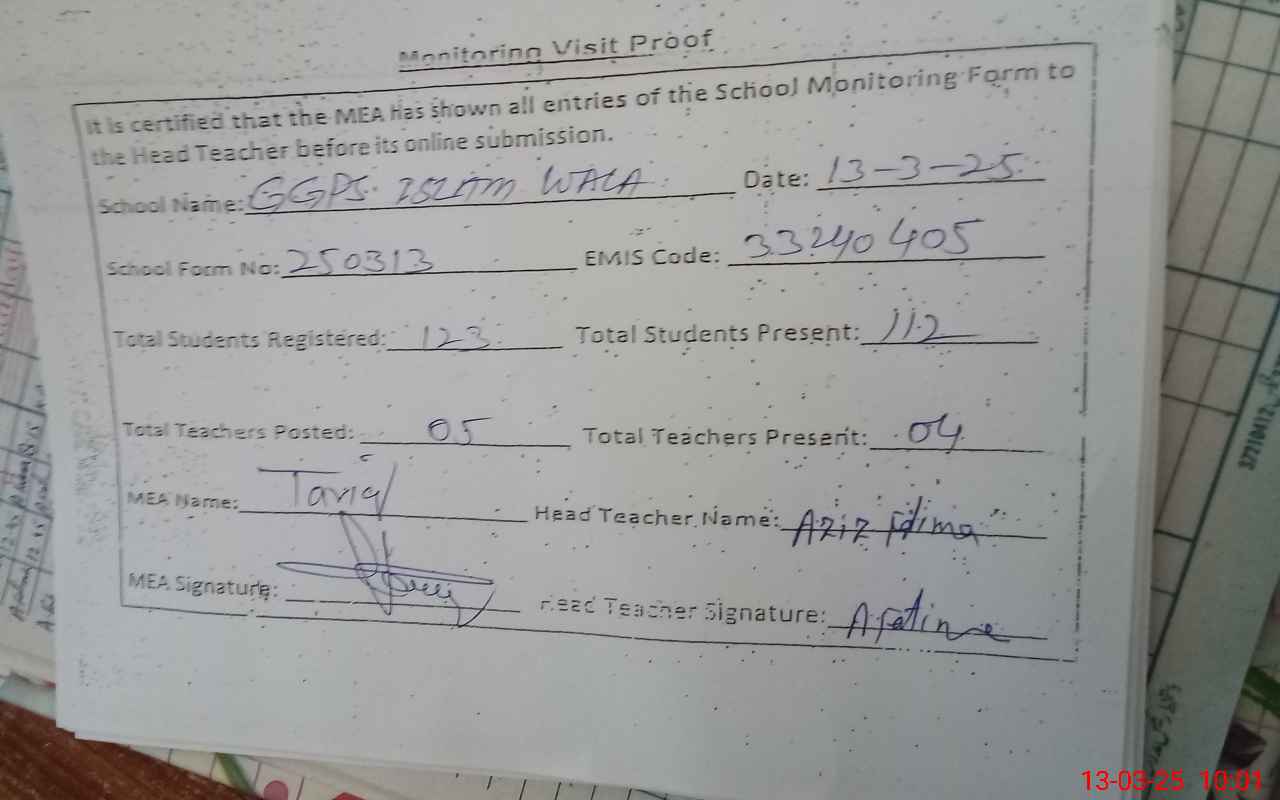 Monitoring Visit Proof
It is certified that the MEA has shown all entries of the School Monitoring Form to
the Head Teacher before its online submission.
School Name: GGPS ISLAM WALA Date: 13-3-25
School Form No: 250313 EMIS Code: 33240405
Total Students Registered: 123 Total Students Present: 112
Total Teachers Posted: 05 Total Teachers Present: 04
MEA Name: Tariq Head Teacher Name: Aziz Fatima
MEA Signature: Head Teacher Signature: A Fatima
13-03-25 10:01